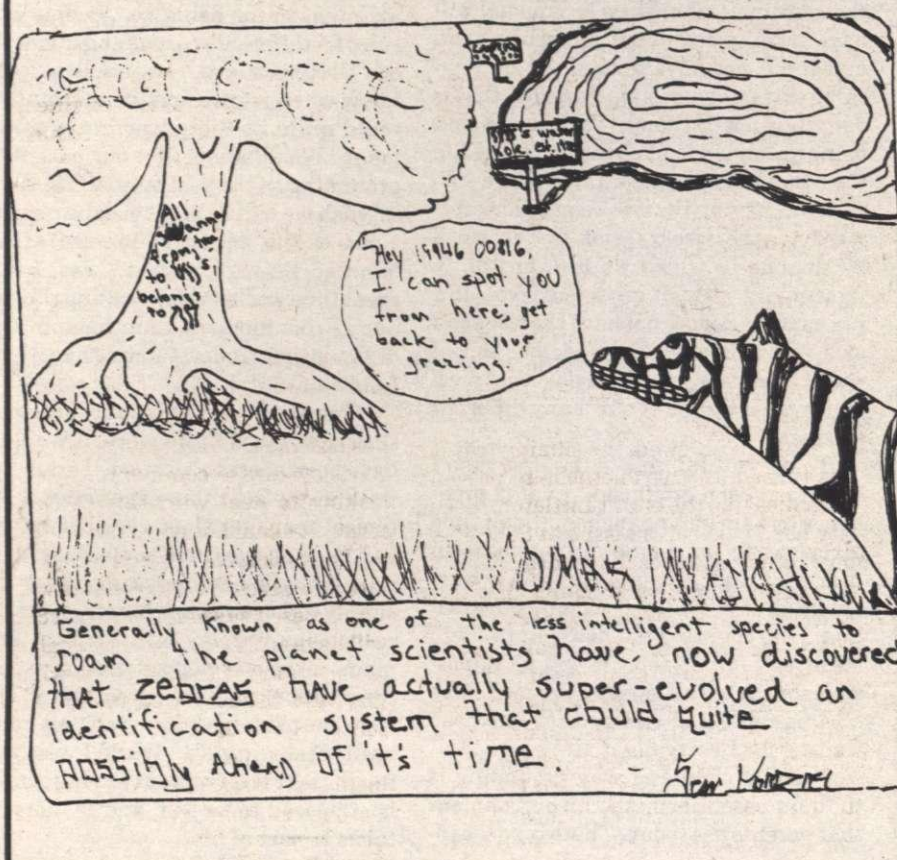 water
All
Savanna
From
to
belongs
to
"Hey 19946 00816,
I can spot you
from here; get
back to your
grazing.
Generally known as one of the less intelligent species to
roam the planet scientists have now discovered
that zebras have actually super-evolved an
identification system that could quite
possibly Ahead of it's time.